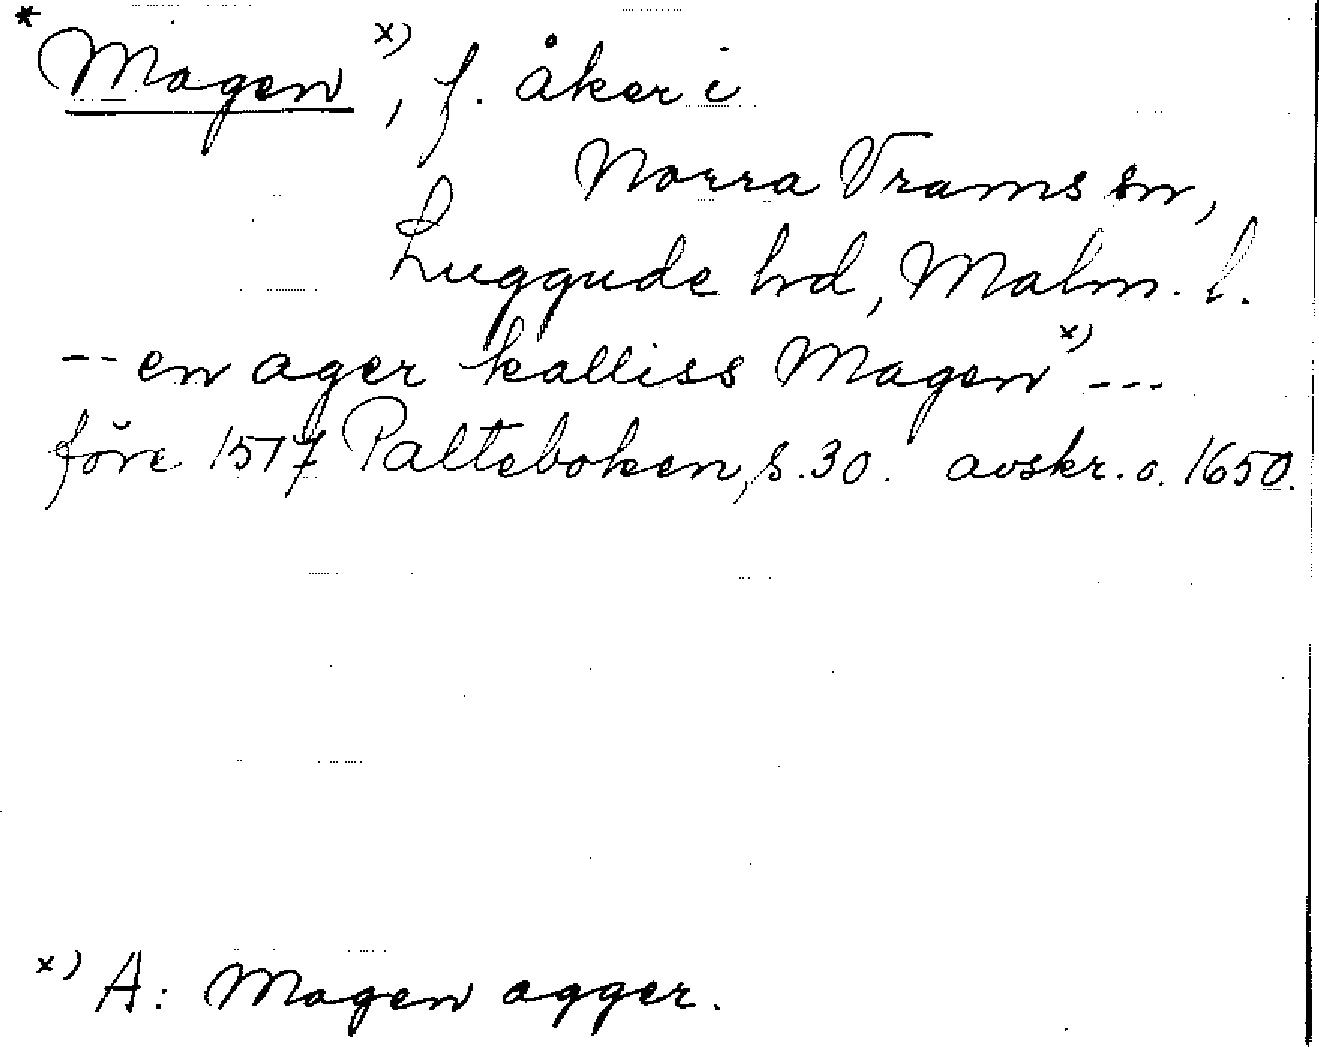 * Magen x), f. åker i
Norra Vrams sn,
Luggude hd, Malm. l.
-- en ager kalliss Magen x) ---
före 1517 Palteboken, s. 30. avskr. o. 1650.
x) A: Magen agger.